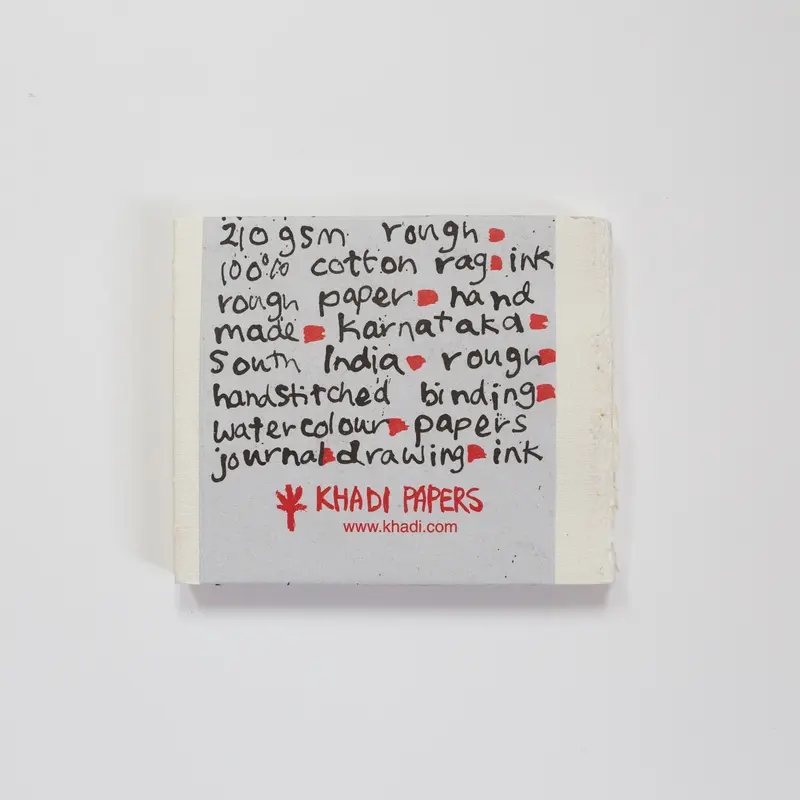 210 gsm rough
100% cotton rag ink
rough paper hand
made karnataka
South India rough
handstitched binding
watercolour papers
journal drawing ink
KHADI PAPERS
www.khadi.com